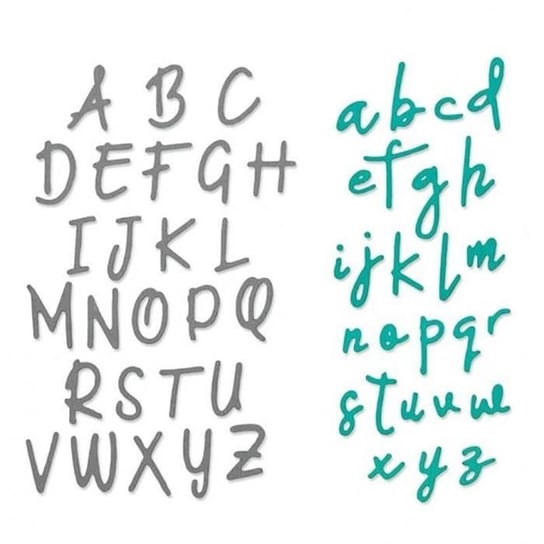 A B C
D E F G H
I J K L
M N O P Q
R S T U
V W X Y Z
a b c d
e f g h
i j k l m
n o p q r
s t u v w
x y z